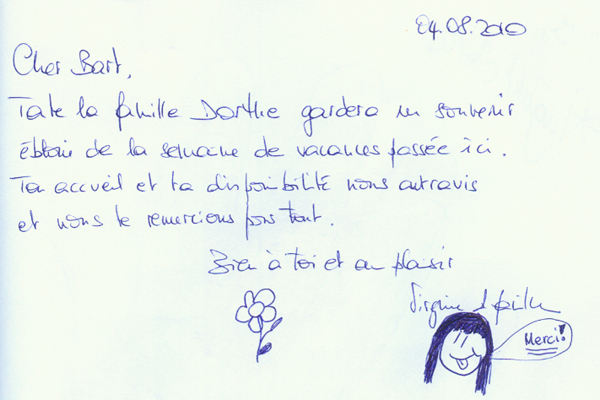 04.08.2010
Cher Bart,
Toute la famille Dorthe gardera un souvenir
de la semaine de vacances passée ici.
Ton accueil et ta disponibilité nous ont ravis
et nous te remercions pour tout.
Bien à toi et au plaisir
Virginie & famille
Merci!